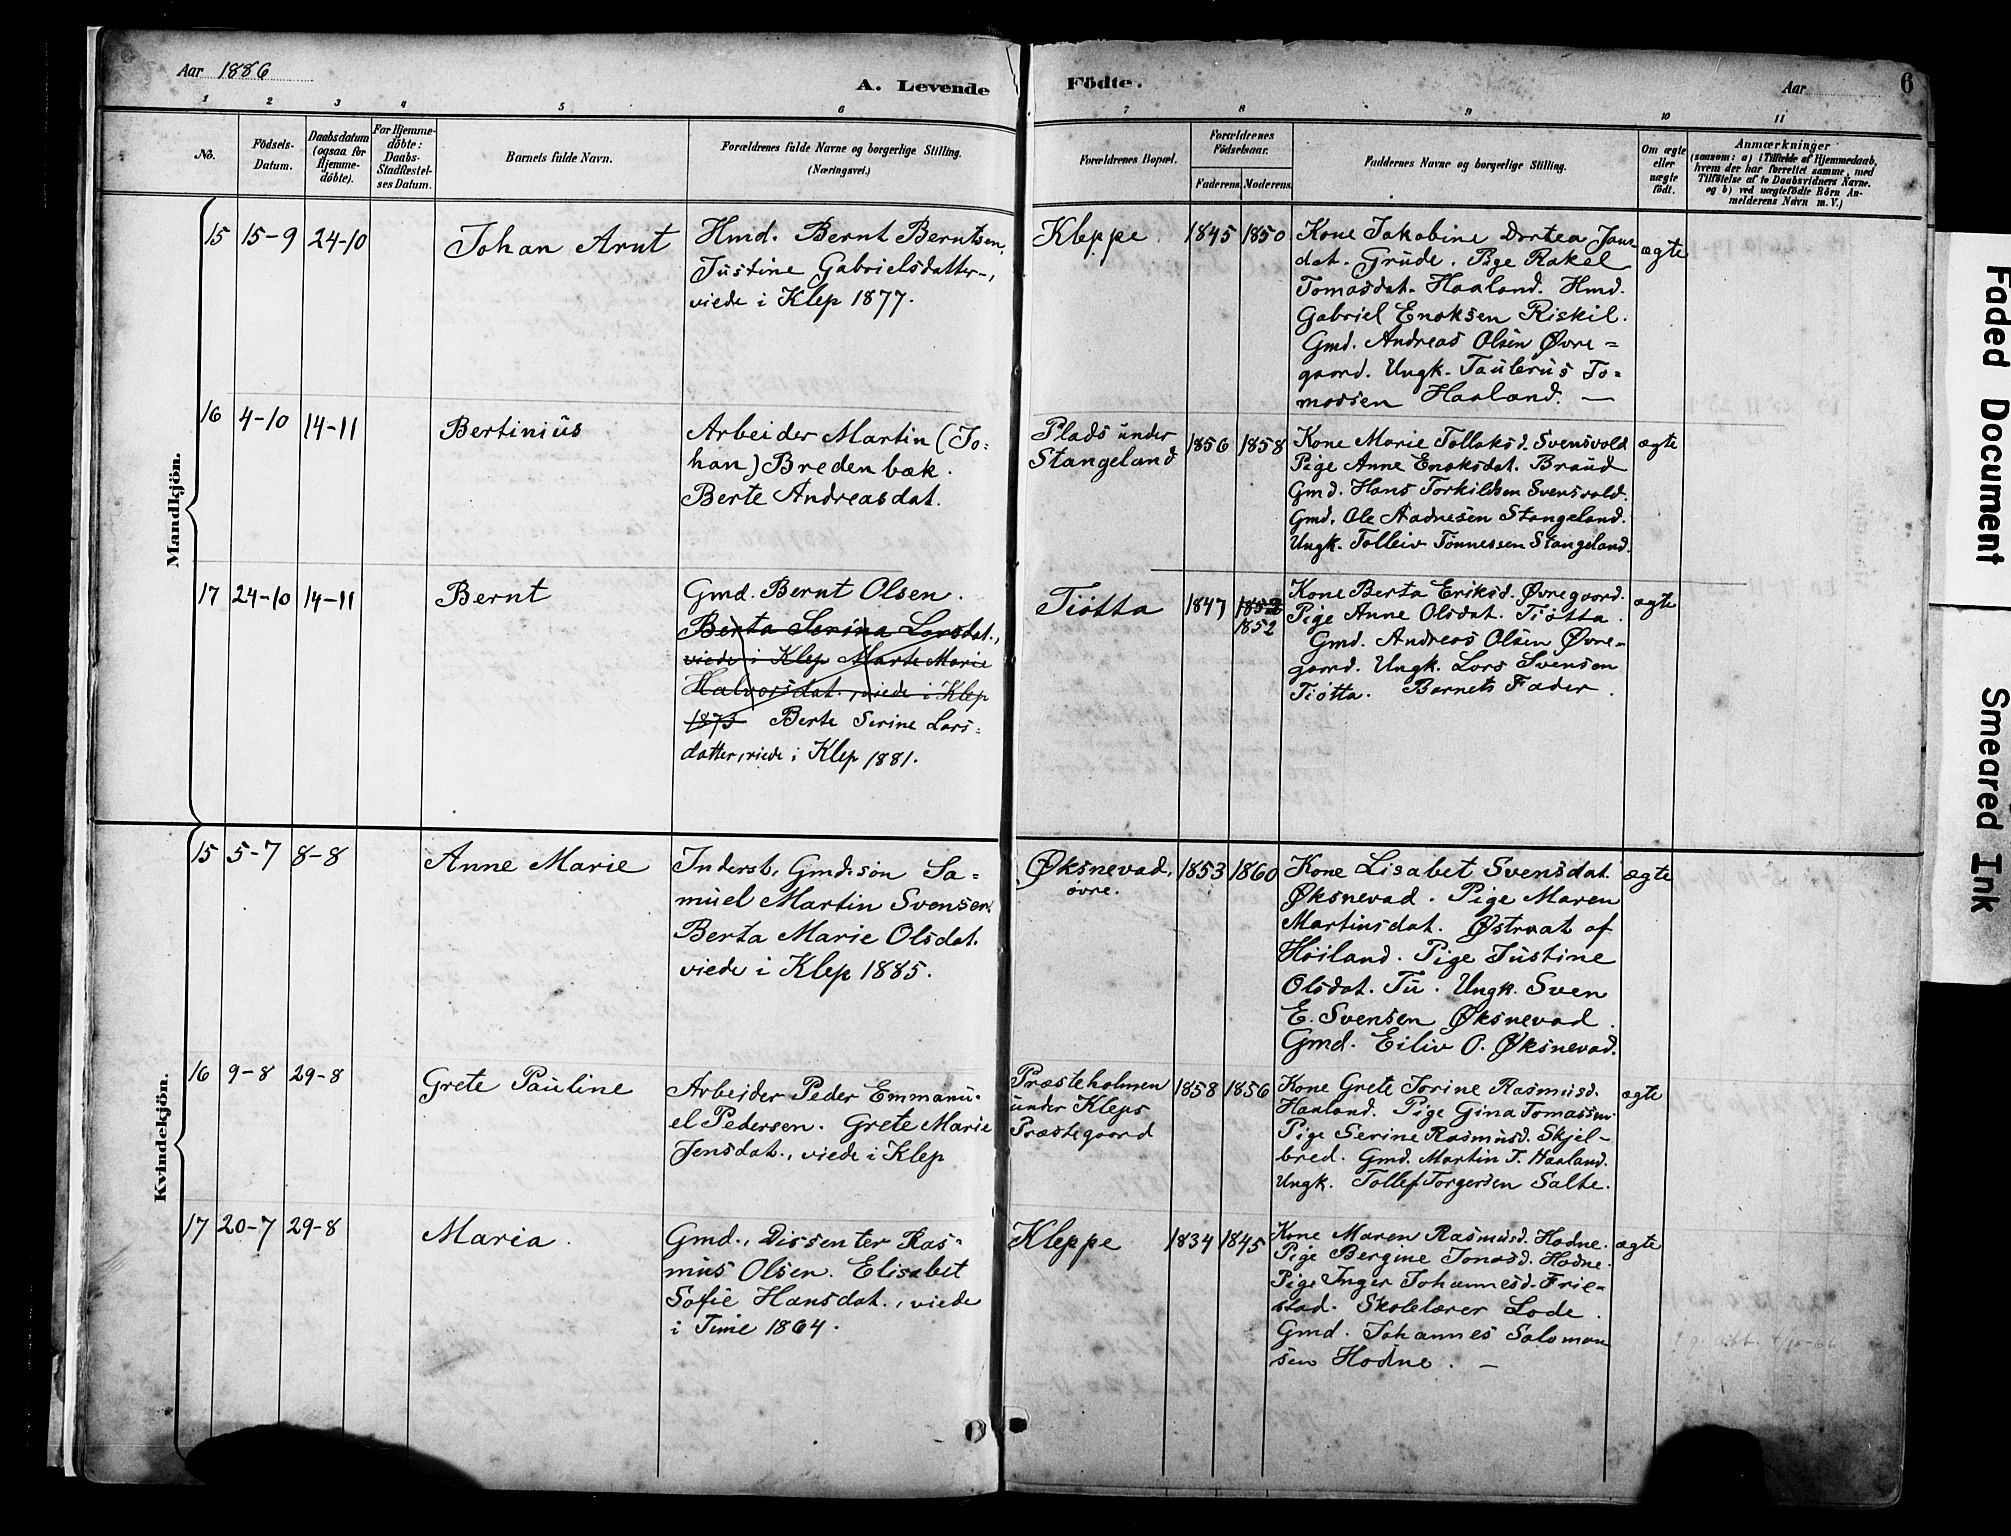 Aar 1886
A. Levende
Födte.
Aar
6
1 2 3 4 5 6 7 8 9 10 11
No.
Födsels-
Datum.
Daabsdatum
(ogsaa for
Hjemme-
döbte).
For Hjemme-
döbte:
Daabs-
Stadfæstel-
ses Datum.
Barnets fulde Navn.
Forældrenes fulde Navne og borgerlige Stilling.
(Næringsvei.)
Forældrenes Bopæl.
Forældrenes
Födselsaar.
Faderens. Moderens.
Faddernes Navne og borgerlige Stilling.
Om ægte
eller
uægte
födt.
Anmærkninger
(saasom: a) i Tilfælde af Hjemmedaab,
hvem der har forrettet samme, med
Tilføielse af to Daabsvidners Navne.
og b) ved uægtefödte Börn An-
melderens Navn m. V.)
Mandkjön.
15 15-9 24-10
Johan Arnt
Hmd. Bernt Berntsen,
Justine Gabrielsdatter,
viede i Klep 1877.
Kleppe.
1845 1850
Kone Jakobine Dortea Jans
dat. Grude. Pige Rakel
Tomasdat. Haaland. Hmd.
Gabriel Enoksen Riskil.
Gmd. Andreas Olsen Øvre=
gaard. Ungk. Taulerus To=
massen Haaland. —
ægte
16 4-10 14-11
Bertinius
Arbeider Martin (Jo-
han) Bredenbæk.
Berte Andreasdat.
Plads under
Stangeland
1856 1858
Kone Marie Tollaksd. Svensvold
Pige Anne Enoksdat. Braud
Gmd. Hans Torkildsen Svensvold.
Gmd. Ole Aadnesen Stangeland.
Ungk. Tolleiv Tønnessen Stangeland.
ægte
17 24-10 14-11
Bernt
Gmd. Bernt Olsen.
Berta Serina Larsdat.,
viede i Klep Marte Marie
Halvorsdat., viede i Klep
1873 Berte Serine Lars-
datter, viede i Klep 1881.
Tiøtta
1847 1852
1852
Kone Berta Eriksd. Øvregaard.
Pige Anne Olsdat. Tiøtta.
Gmd. Andreas Olsen Øvre-
gaard. Ungk. Lars Svensen
Tiøtta. Barnets Fader.
ægte
Kvindekjön.
15 5-7 8-8
Anne Marie
Inderst, Gmdssøn Sa-
muel Martin Svensen.
Berta Marie Olsdat.
viede i Klep 1885.
Øksnevad,
øvre.
1853 1860
Kone Lisabet Svensdat.
Øksnevad. Pige Maren
Martinsdat. Østraat af
Høiland. Pige Justine
Olsdat. Tu. Ungk. Sven
E. Svensen Øksnevad.
Gmd. Eiliv O. Øksnevad.
ægte
16 9-8 29-8
Grete Pauline
Arbeider Peder Emmanu-
el Pedersen. Grete Marie
Jensdat., viede i Klep
Præsteholmen
under Kleps
Præstegaard
1858 1856
Kone Grete Torine Rasmusd.
Haaland. Pige Gina Tomassen.
Pige Serine Rasmusd. Skjel-
bred. Gmd. Martin T. Haaland.
Ungk. Tollef Torgersen Salte.
ægte
17 20-7 29-8
Maria.
Gmd., Dissenter Ras-
mus Olsen. Elisabet
Sofie Hansdat., viede
i Time 1864.
Kleppe
1834 1845
Kone Maren Rasmusd. Hodne.
Pige Bergine Jonasd. Hodne.
Pige Inger Johannesd. Frie-
stad. Skolelærer Lode.
Gmd. Johannes Saloman
sen Hodne. —
ægte
Faded Document
Smeared Ink